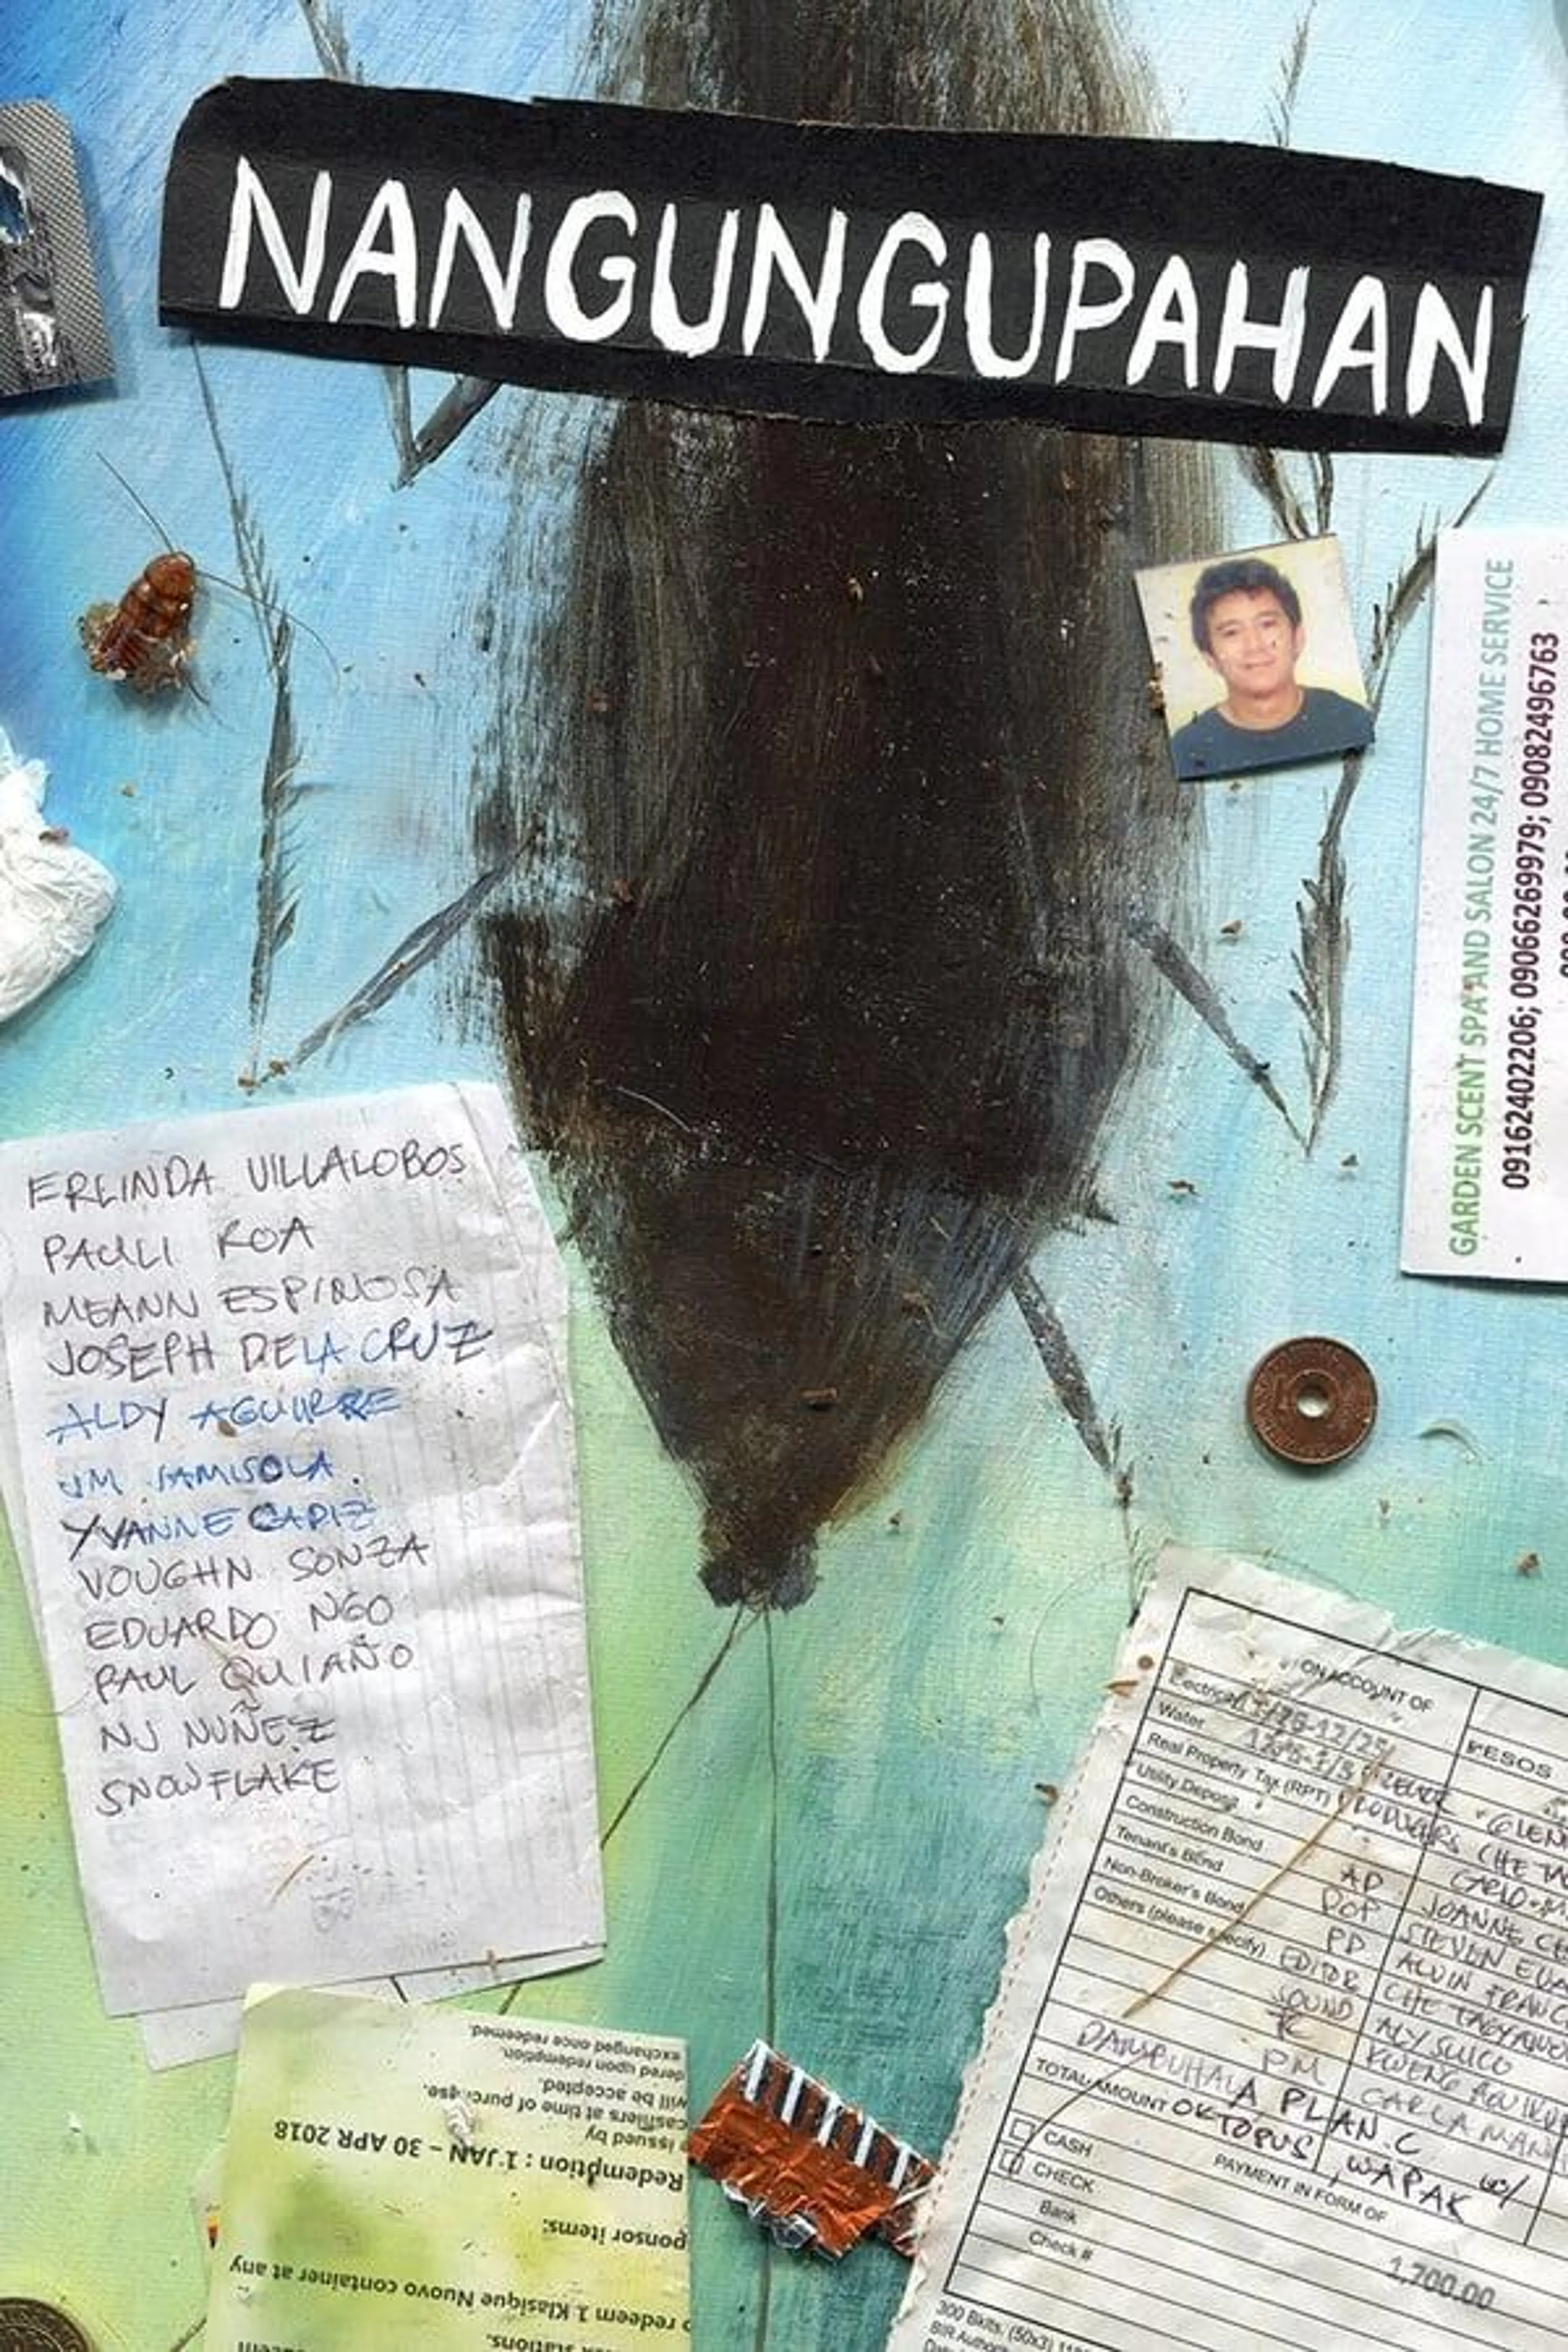 NANGUNGUPAHAN
GARDEN SCENT SPA AND SALON 24/7 HOME SERVICE
09162402206; 09066269979; 09082496763
ERLINDA VILLALOBOS
PAULI ROA
MEANN ESPINOSA
JOSEPH DELA CRUZ
ALDY AGUIRRE
JM JAMISOLA
YVANNE CAPIZ
VOUGHN SONZA
EDUARDO NGO
PAUL QUIAÑO
NJ NUÑEZ
SNOWFLAKE
ON ACCOUNT OF
PESOS
Electrical
Water
Real Property Tax (RPT) PRODUCERS CHE
Utility Deposit
Construction Bond
Tenant's Bond AD JOANNE
Non-Broker's Bond DOP STEVEN
Others (please specify) PD ALVIN FRANC
EDITOR CHE
SOUND ALY SUICO
PM CARLA MAN
DAMBUHALA PLAN.C
TOTAL AMOUNT OKTOPUS, WAPAK
PAYMENT IN FORM OF
CASH
CHECK
Bank
Check #
1,700.00
300 Bklts. (50x3)
BIR
stations.
redeem 1 Klasique Nuovo container at any
ponsor items:
Redemption : 1 JAN – 30 APR 2018
issued by
cashiers at time of purchase.
will be accepted.
dered upon redemption.
exchanged once redeemed.